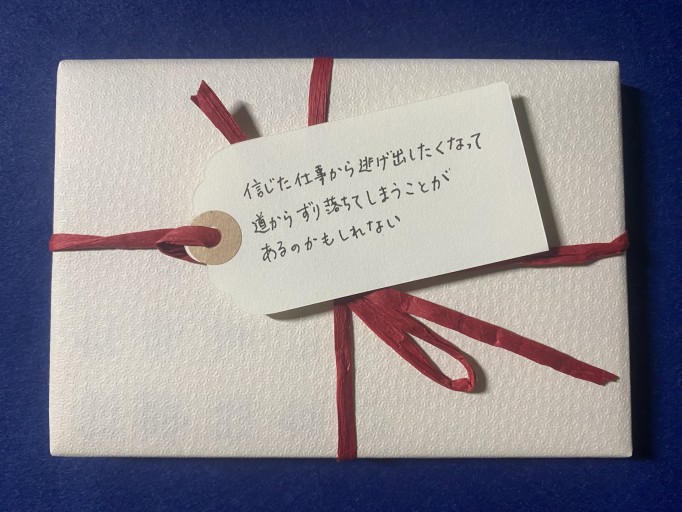 信じた仕事から逃げ出したくなって
道からずり落ちてしまうことが
あるのかもしれない